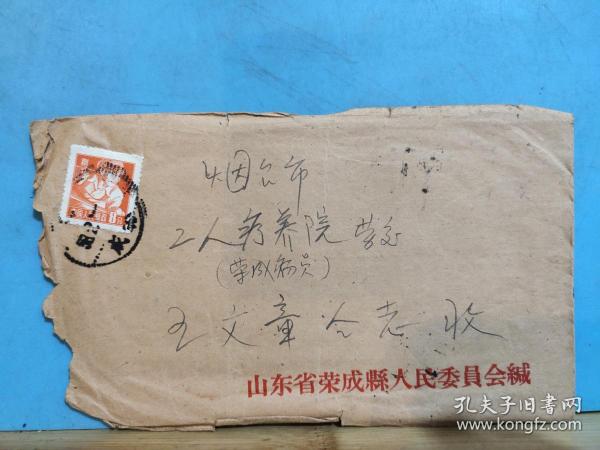 烟台市
工人疗养院 劳交
(荣成病员)
王文章仝志 收
山东省荣成縣人民委員会缄
8分
孔夫子旧书网
www.kongfz.com